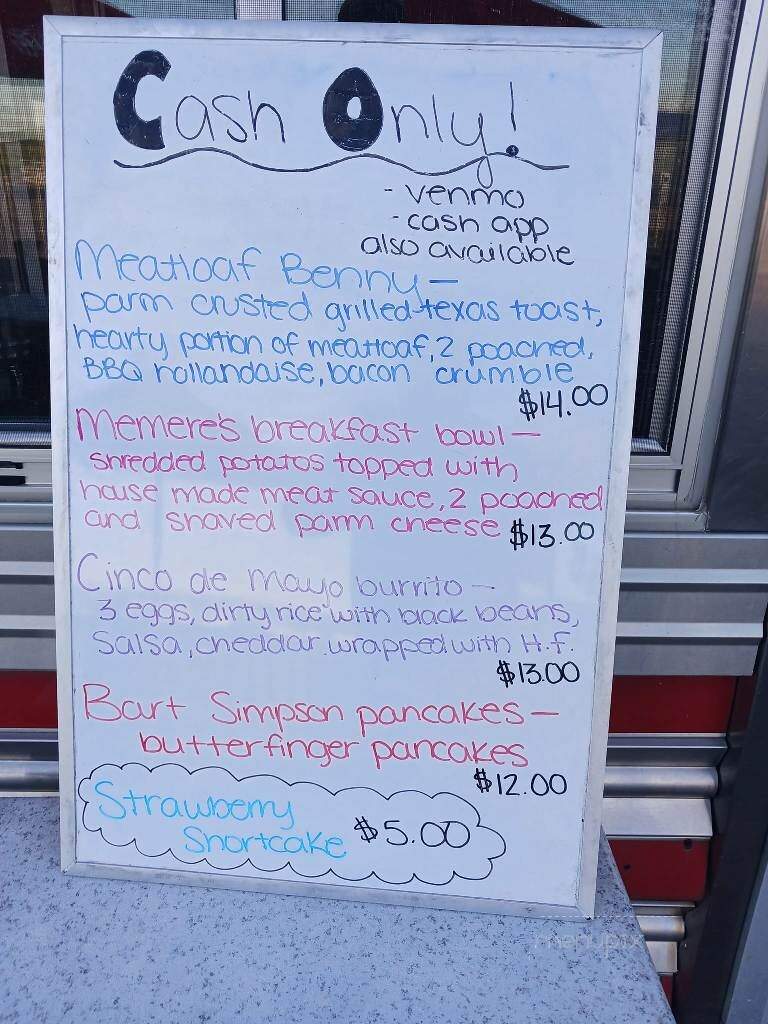 Cash Only!
- venmo
- cash app
also available
Meatloaf Benny -
parm crusted grilled texas toast,
hearty portion of meatloaf, 2 poached,
BBQ hollandaise, bacon crumble
$14.00
Memere's breakfast bowl -
shredded potatos topped with
house made meat sauce, 2 poached
and shaved parm cheese $13.00
Cinco de mayo burrito -
3 eggs, dirty rice with black beans,
salsa, cheddar wrapped with H.f.
$13.00
Bart Simpson pancakes -
butterfinger pancakes
$12.00
Strawberry
Shortcake $5.00
menupix